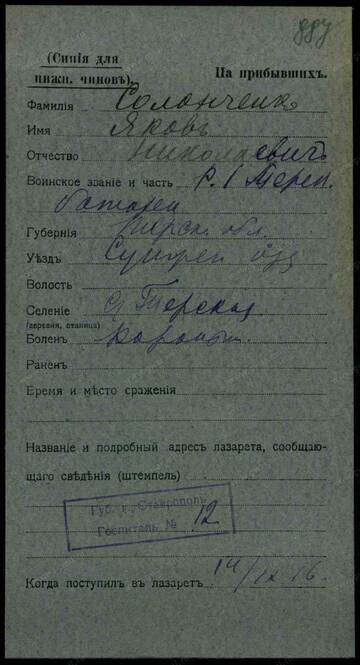 887
(Синія для
нижн. чиновъ).
На прибывшихъ.
Фамилія Солонченко
Имя Яковъ
Отчество Николаевичъ
Воинское званіе и часть Р. 1 Терск.
Губернія Терск. обл.
Уѣздъ Сунжен
Волость
Селеніе Терская
(деревня, станица)
Боленъ
Раненъ
Время и мѣсто сраженія
Названіе и подробный адресъ лазарета, сообщаю-
щаго свѣдѣнія (штемпель)
Губ. г. Ставрополь
Госпиталь № 12
Когда поступил въ лазаретъ 14/IX 16.